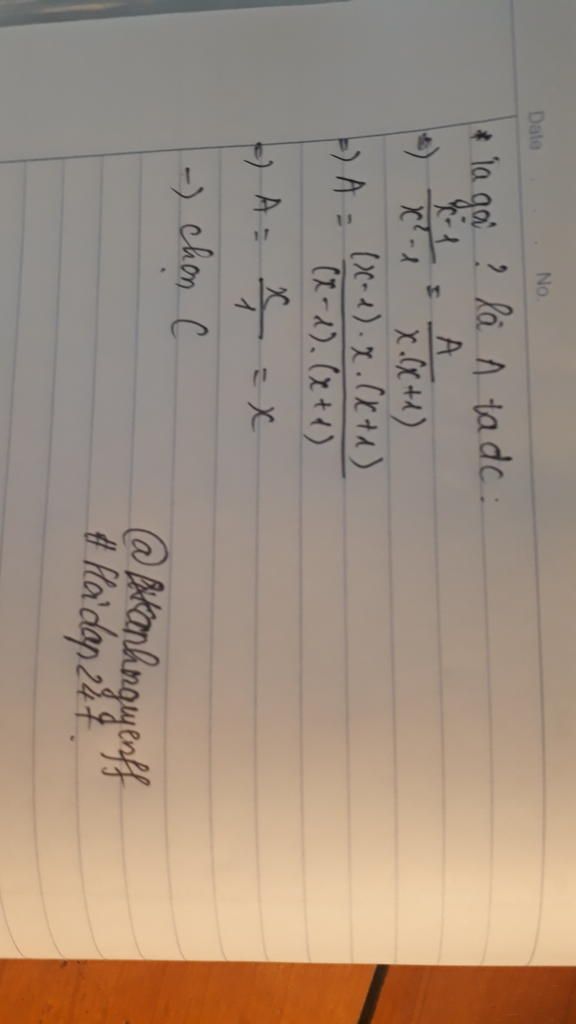 Date . . . No.
* Ta gọi ? là A ta dc:
=) x-1/x²-1 = A/x.(x+1)
=) A = (x-1).x.(x+1)/(x-1).(x+1)
=) A = x/1 = x
-) chọn C
# Hỏi dap 247.